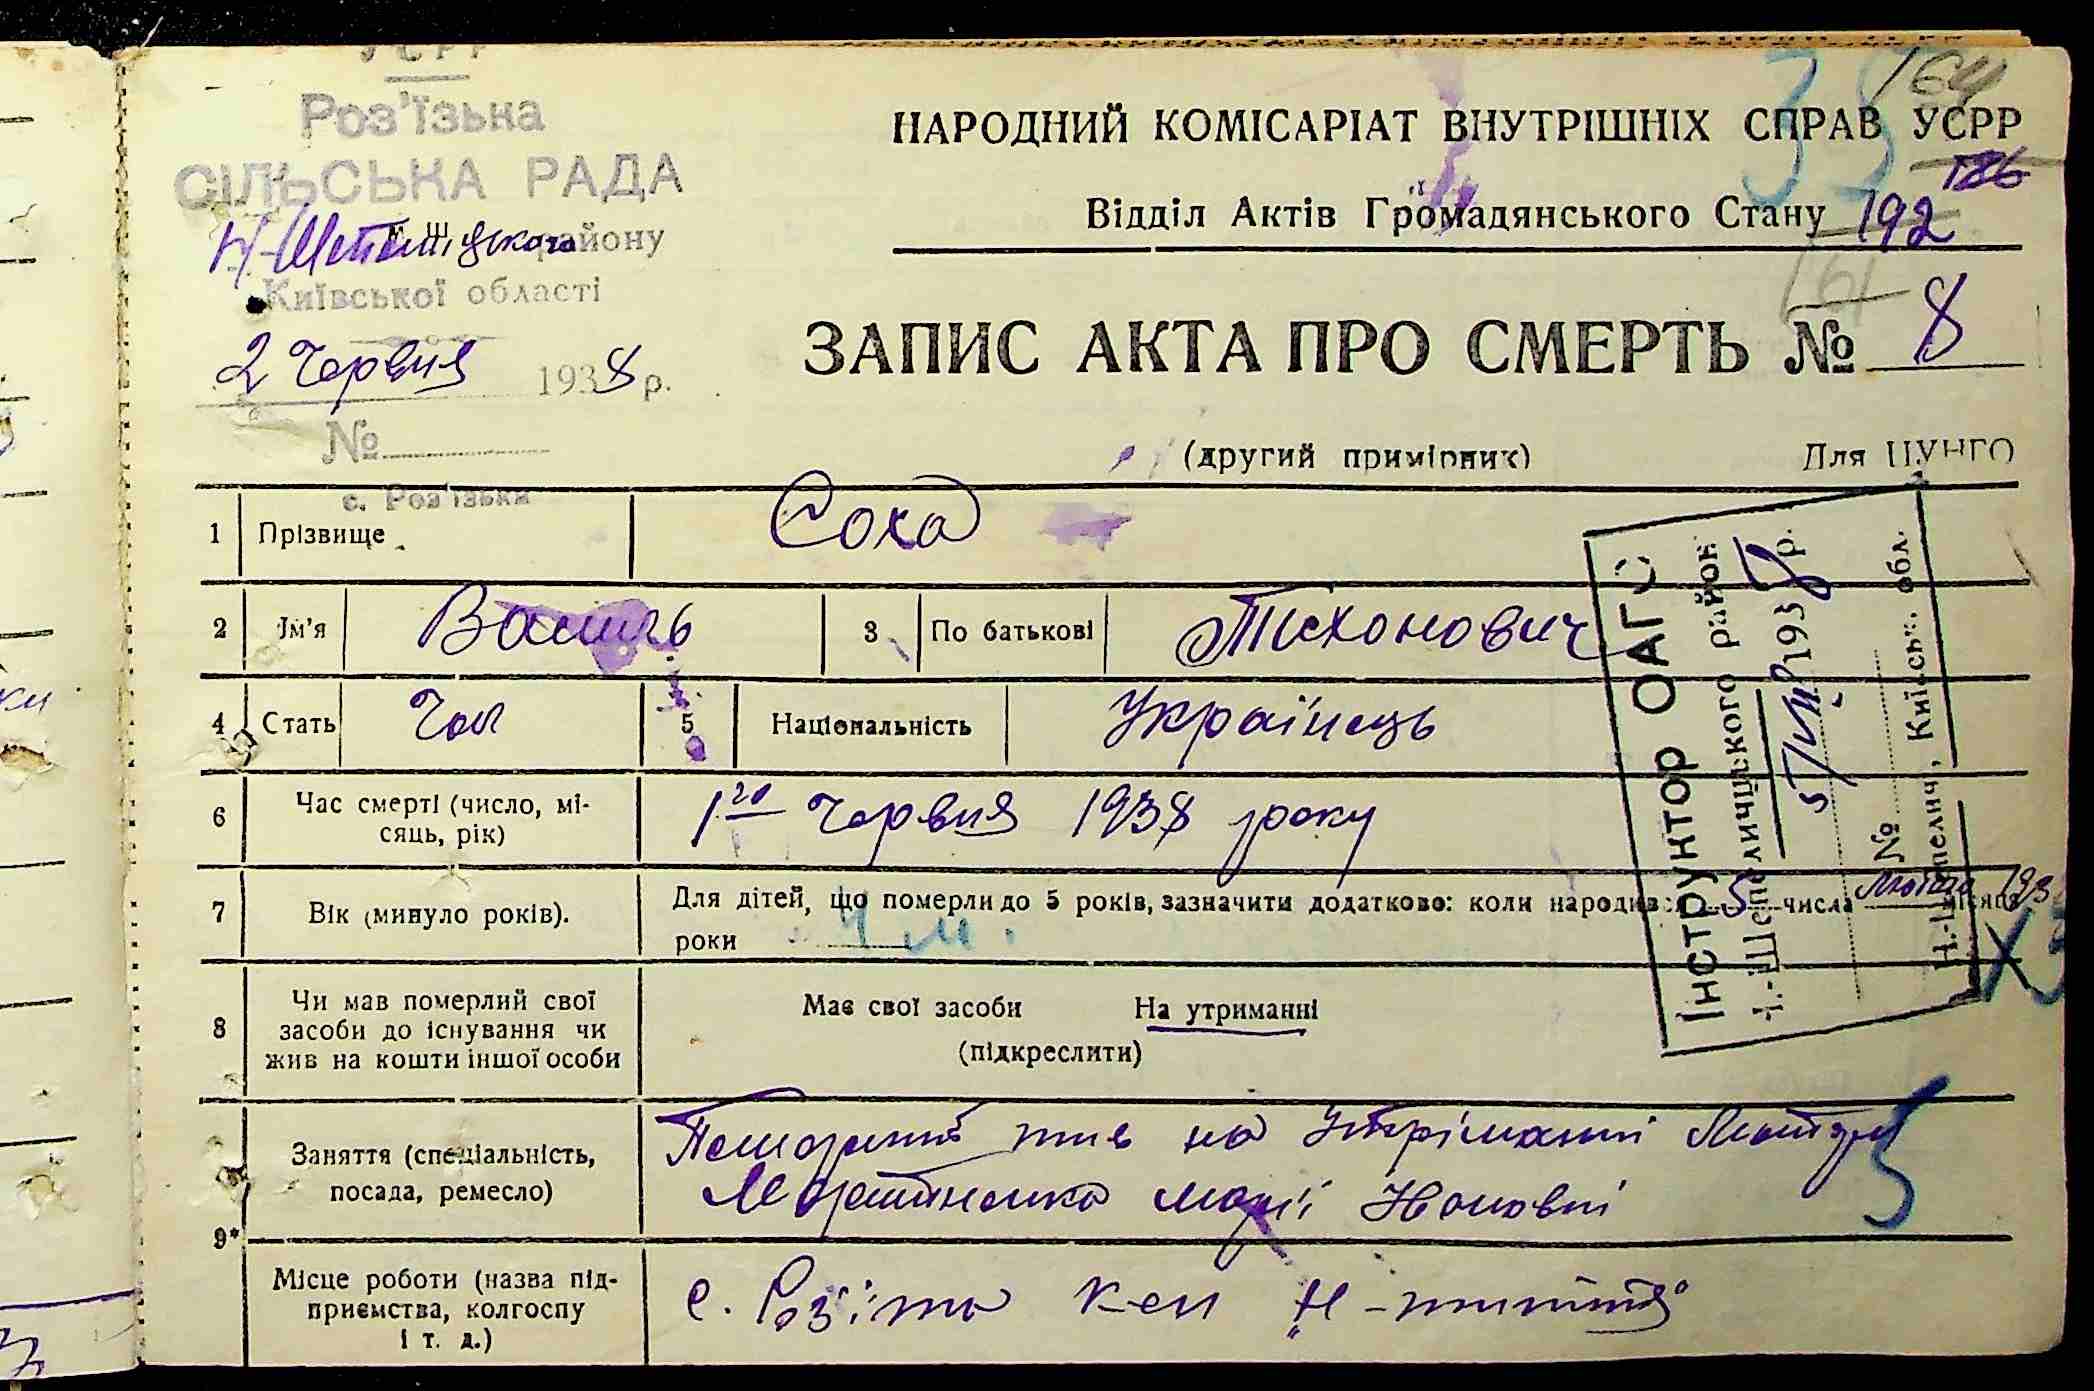 УСРР
Роз'їзька
СІЛЬСЬКА РАДА
Н-Шепелицького району
Київської області
2 Червня 1938 р.
№
с. Роз'їзьки
164
35
НАРОДНИЙ КОМІСАРІАТ ВНУТРІШНІХ СПРАВ УСРР
186
Відділ Актів Громадянського Стану 192
161
ЗАПИС АКТА ПРО СМЕРТЬ № 8
(другий примірник) Для ЦУНГО
1 Прізвище Соха
2 Ім'я Василь 3 По батькові Тихонович
4 Стать Чол 5 Національність Українець
6 Час смерті (число, мі-
сяць, рік) 1го Червня 1938 року
7 Вік (минуло років). Для дітей, що померли до 5 років, зазначити додатково: коли народивс 5 числа Лютого місяця 193
роки 4 м.
8 Чи мав померлий свої
засоби до існування чи
жив на кошти іншої особи
Має свої засоби На утриманні
(підкреслити)
9* Заняття (спеціальність,
посада, ремесло)
на Утріманні Матери
Марії
Місце роботи (назва під-
приємства, колгоспу
і т. д.)
с. "Н-життя"
ІНСТРУКТОР ОАГС
Н.-Шепеличцького район
5/VIII 1938 р.
№
Н.-Шепелич, Київськ. обл.
5